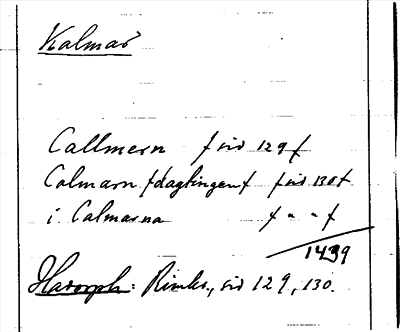 Kalmar
Callmern / sid 129 /
Calmarn /daglingen/ / sid 130 /
i Calmarna / " " /
1439
Hadorph: Rimkr., sid 129, 130.